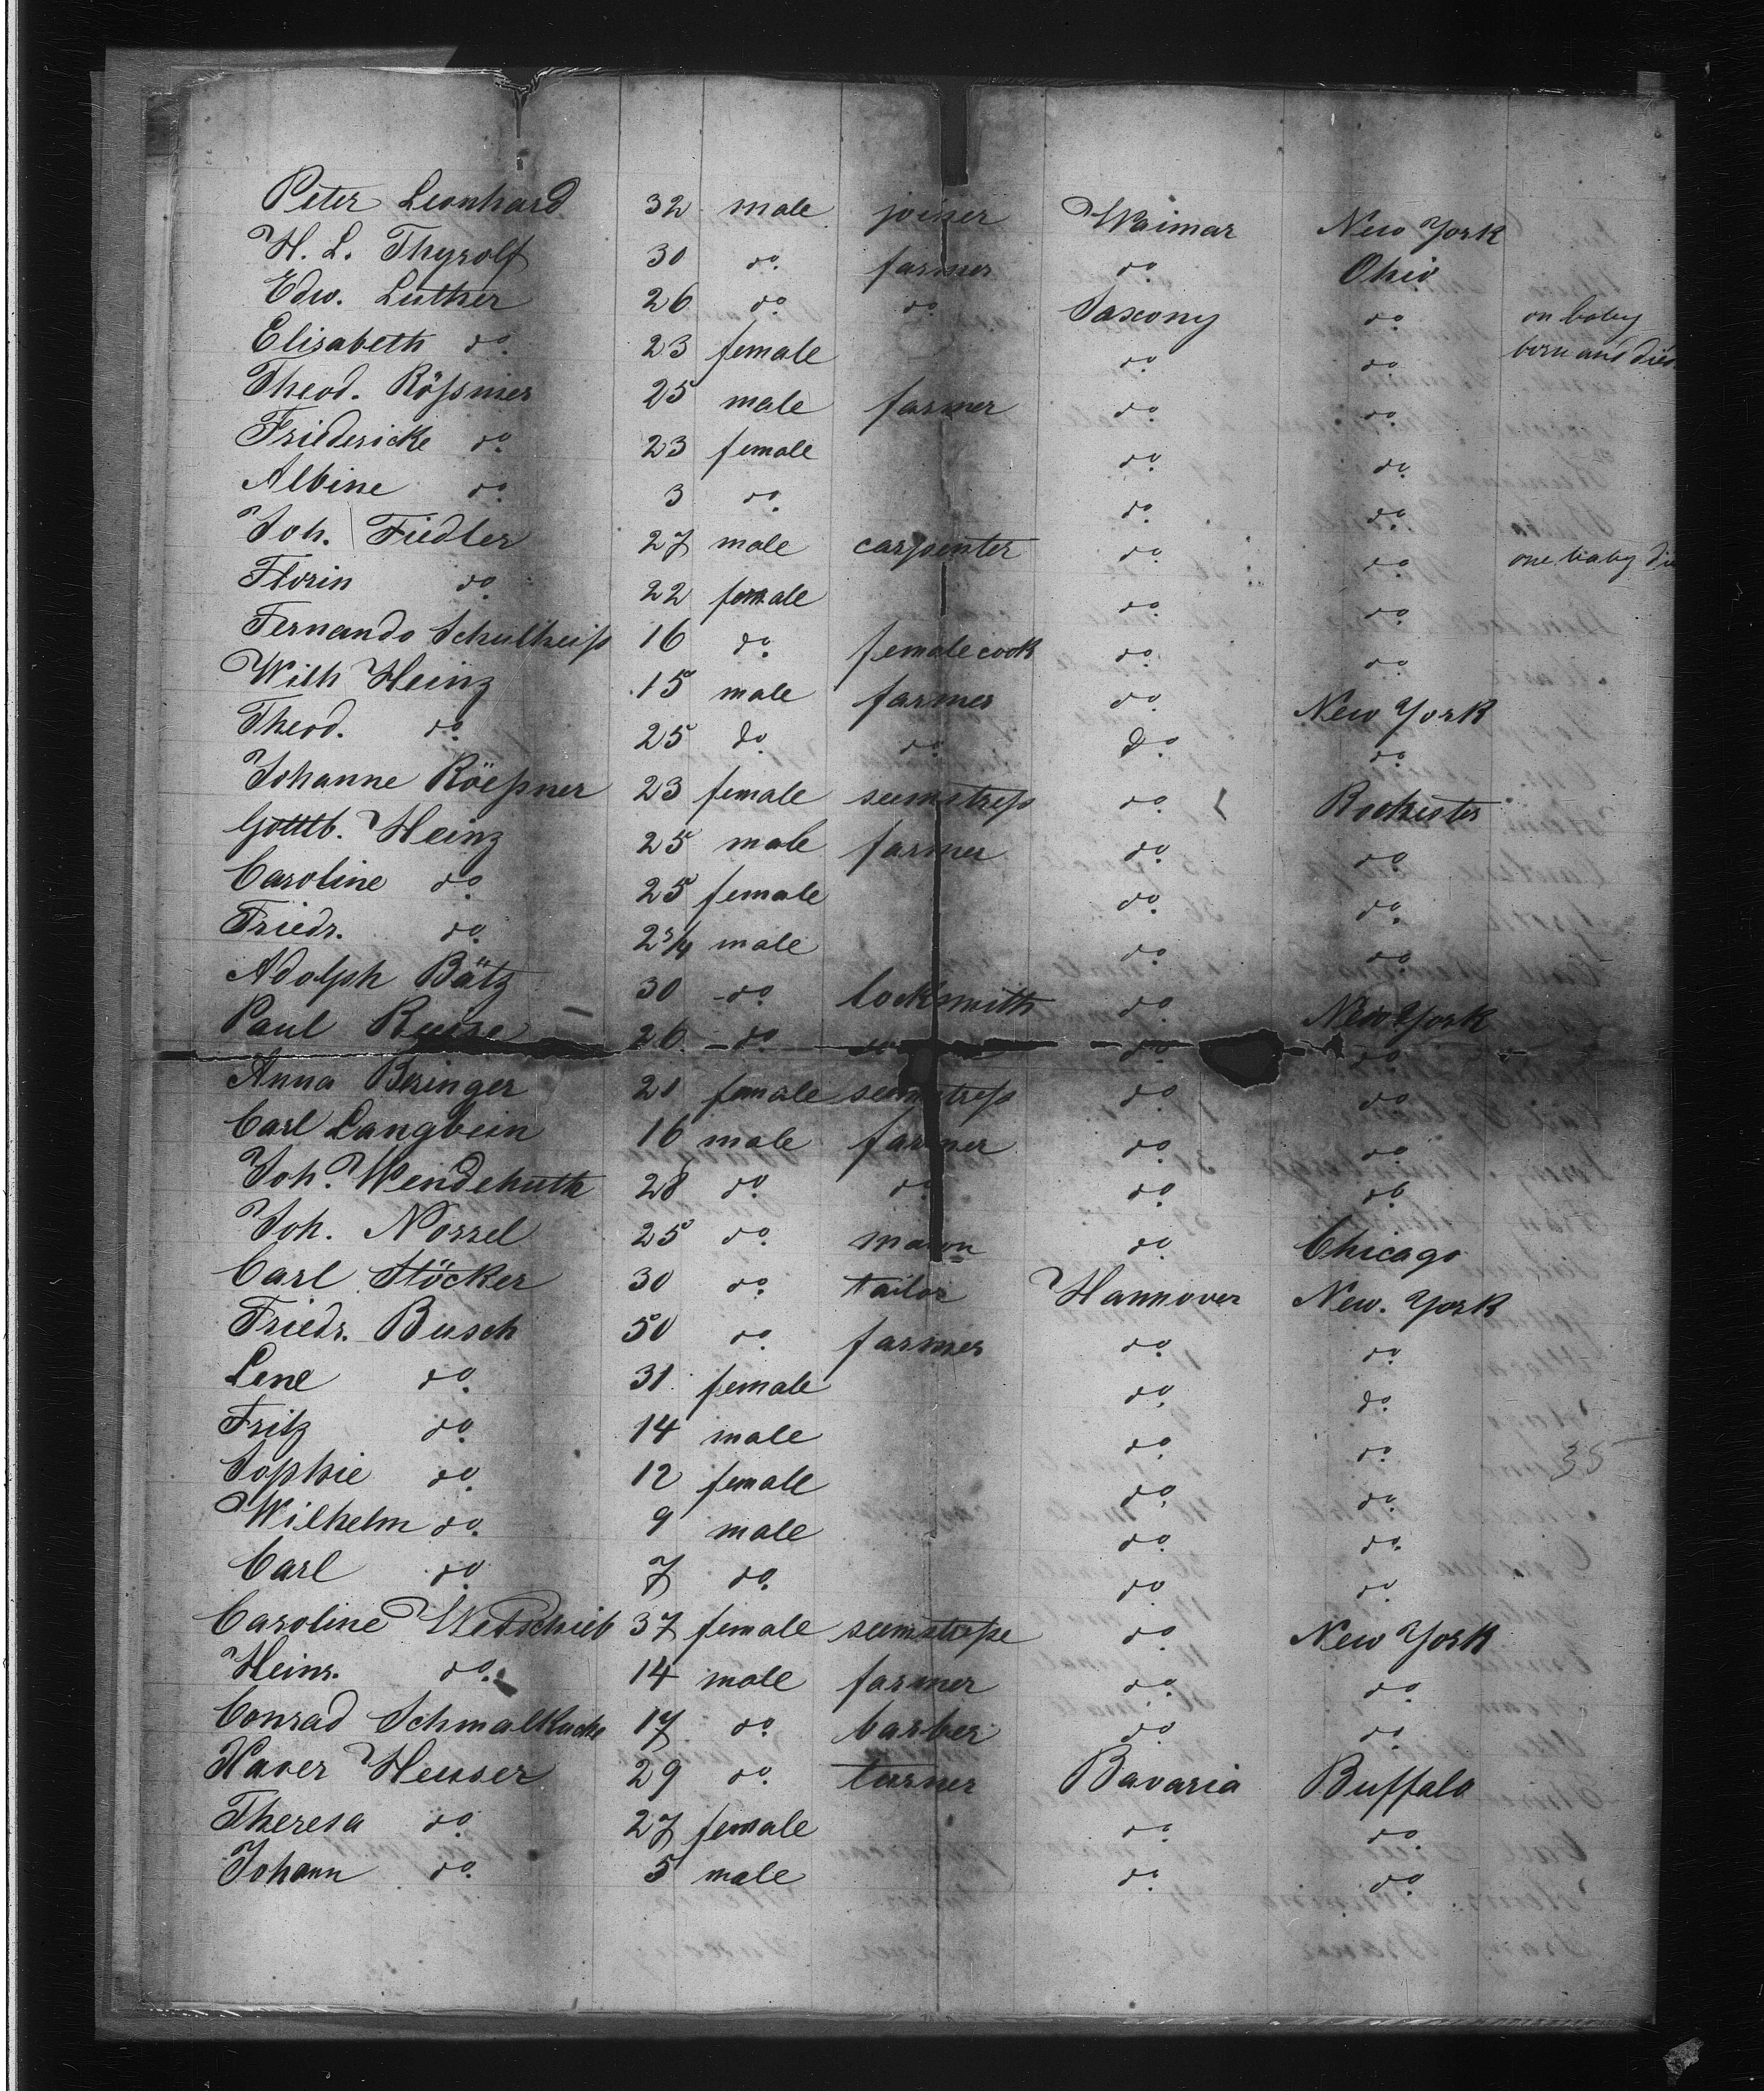 Peter Leonhard 32 male joiner Waimar New York
H. L. Thyrolf 30 do. farmer do. Ohio
Edw. Luther 26 do. do. Saxony do. on baby
Elisabeth do. 23 female do. do. born and died
Theod. Rößner 25 male farmer do. do.
Friedericke do. 23 female do. do.
Albine do. 3 do. do. do.
Joh. Fiedler 27 male carpenter do. do. one baby die
Florin do. 22 female do. do.
Fernando Schultheiß 16 do. female cook do. do.
Wilh Heinz 15 male farmer do. New York
Theod. do. 25 do. do. do. do.
Johanne Röeßner 23 female seemstreß do. Rochester
Gottlb. Heinz 25 male farmer do. do.
Caroline do. 25 female do. do.
Friedr. do. 2 3/4 male do. do.
Adolph Bätz 30 do. locksmith do. New York
Paul 26 do. do. do. do.
Anna Beringer 21 female seemstreß do. do.
Carl Langbein 16 male farmer do. do.
Joh. Wendehuth 28 do. do. do. do.
Joh. Nossel 25 do. mason do. Chicago
Carl Stöcker 30 do. tailor Hannover New. York
Friedr. Busch 50 do. farmer do. do.
Lene do. 31 female do. do.
Fritz do. 14 male do. do.
35
Sophie do. 12 female do. do.
Wilhelm do. 9 male do. do.
Carl do. 7 do. do. do.
Caroline 37 female seemstreße do. New York
Heinr. do. 14 male farmer do. do.
Conrad Schmalkuche 17 do. barber do. do.
Xaver Heusser 29 do. turner Bavaria Buffalo
Theresa do. 27 female do. do.
Johann do. 5 male do. do.